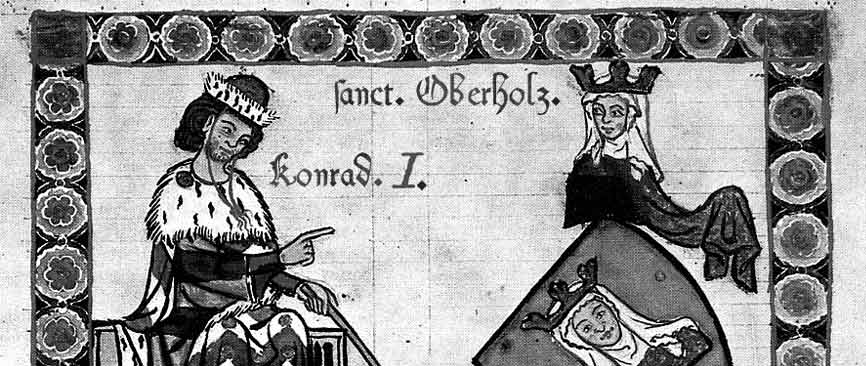 sanct. Oberholz.
Konrad. I.